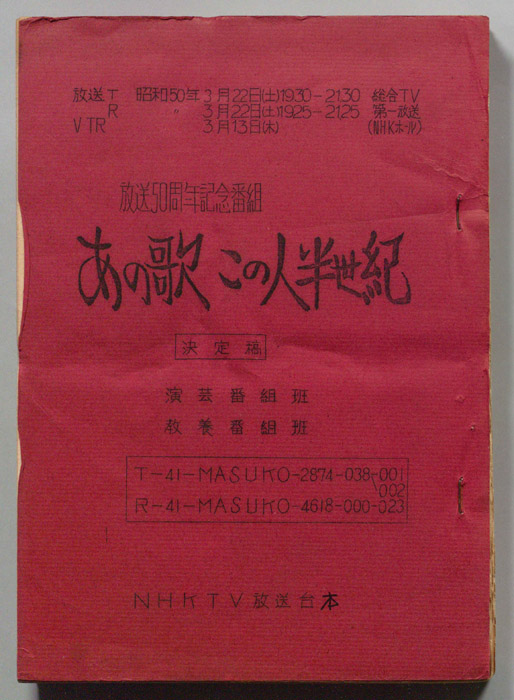 放送 T 昭和50年 3月22日(土)19.30－21.30 総合TV
R 〃 3月22日(土)19.25－21.25 第一放送
VTR 3月13日(木) (NHKホール)
放送50周年記念番組
あの歌 この人半世紀
決定稿
演芸番組班
教養番組班
T-41-MASUKO-2874-038-001
002
R-41-MASUKO-4618-000-023
NHKTV放送台本